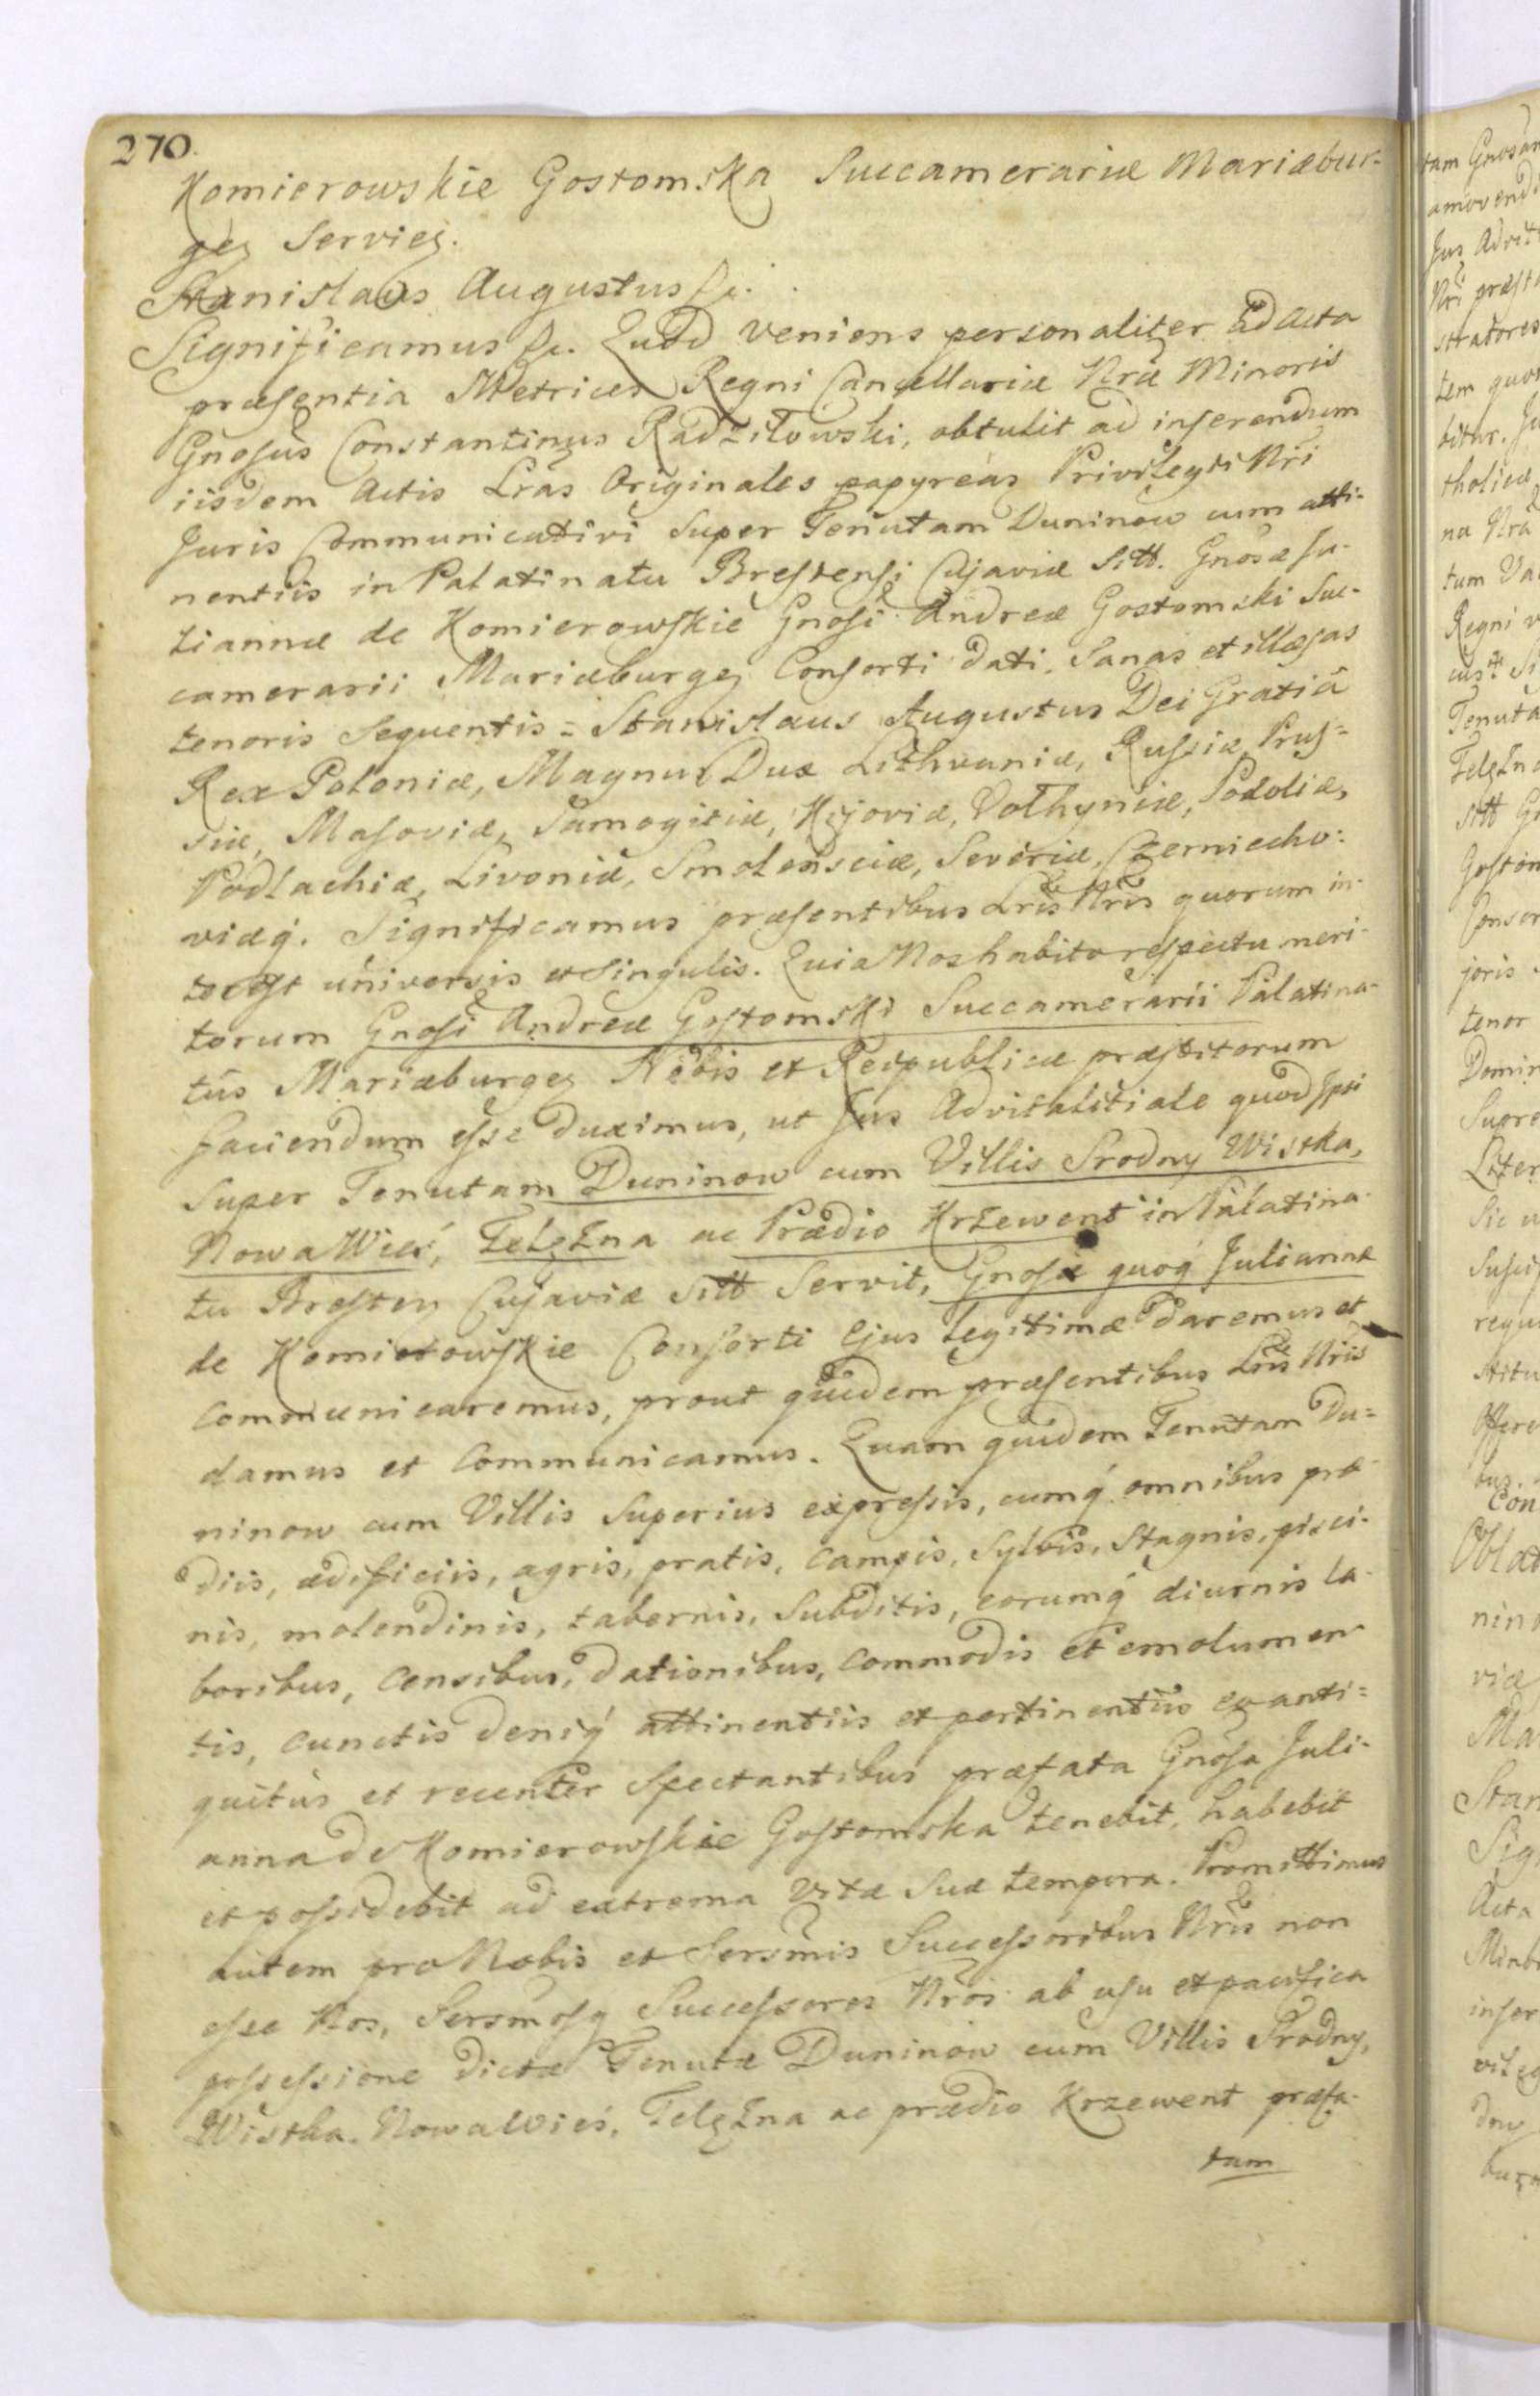 270.
Komierowskie Gostomska Succamerariæ Mariæbur-
geń Servień.
Stanislaus Augustus &c.
Significamus &c. Quod veniens personaliter ad Acta
præsentia Metrices Regni Cancellariæ Nrae Minoris
Gnosus Constantinus Radziłowski, obtulit ad inserendum
iisdem Actis Lras Originales papyreas Privilegii Nri
Juris Communicativi super Tenutam Duninow cum atti-
nentiis in Palatinatu Brestensi Cujaviæ Sitt. Gnosæ Ju-
liannæ de Komierowskie Gnosi Andreæ Gostomski Suc-
camerarii Mariæburgeń Consorti dati. Sanas et illæsas
tenoris sequentis = Stanislaus Augustus Dei Gratiâ
Rex Poloniæ, Magnus Dux Lithvaniæ, Russiæ, Prus-
siæ, Masoviæ, Samogitiæ, Kijoviæ, Volhyniæ, Podoliæ,
Podlachiæ, Livoniæ, Smolensciæ, Severiæ, Czerniecho-
viæq. Significamus præsentibus Lris Nris quorum in-
terest universis et singulis. Quia Nos habito respectu meri-
torum Gnosi Andreæ Gostomski Succamerarii Palatina-
tûs Mariæburgeń Nobis et Reipublicæ præstitorum
faciendum esse duximus, ut Jus Advitalitiale quod Ipsi
super Tenutam Duninow cum Villis Srodny Wistka,
Nowa Wieś, Telężna ac Prædio Krzewent in Palatina-
tu Bresteń Cujaviæ Sitt Servit, Gnosæ quoq Juliannæ
de Komierowskie Consorti Ejus Legitimæ daremus et
communicaremus, prout quidem præsentibus Lris Nris
damus et communicamus. Quam quidem Tenutam Du-
ninow cum Villis superius expressis, cumq omnibus præ-
diis, ædificiis, agris, pratis, campis, sylvis, stagnis, pisci-
nis, molendinis, tabernis, subditis, eorumq diurnis la-
boribus, censibus, dationibus, commodis et emolumen-
tis, cunctis deniq attinentiis et pertinentiis ex anti-
quitus et recenter spectantibus præfata Gnosa Juli-
anna de Komierowskie Gostomska tenebit, habebit
et possidebit ad extrema vitæ suæ tempora. Promittimus
autem pro Nobis et Sersmis Successoribus Nris non
esse Nos, Sersmosq Successores Nros ab usu et pacifica
possessione dictæ Tenutæ Duninow cum Villis Srodny,
Wistka, Nowa Wieś, Telężna ac prædio Krzewent præfa-
tam